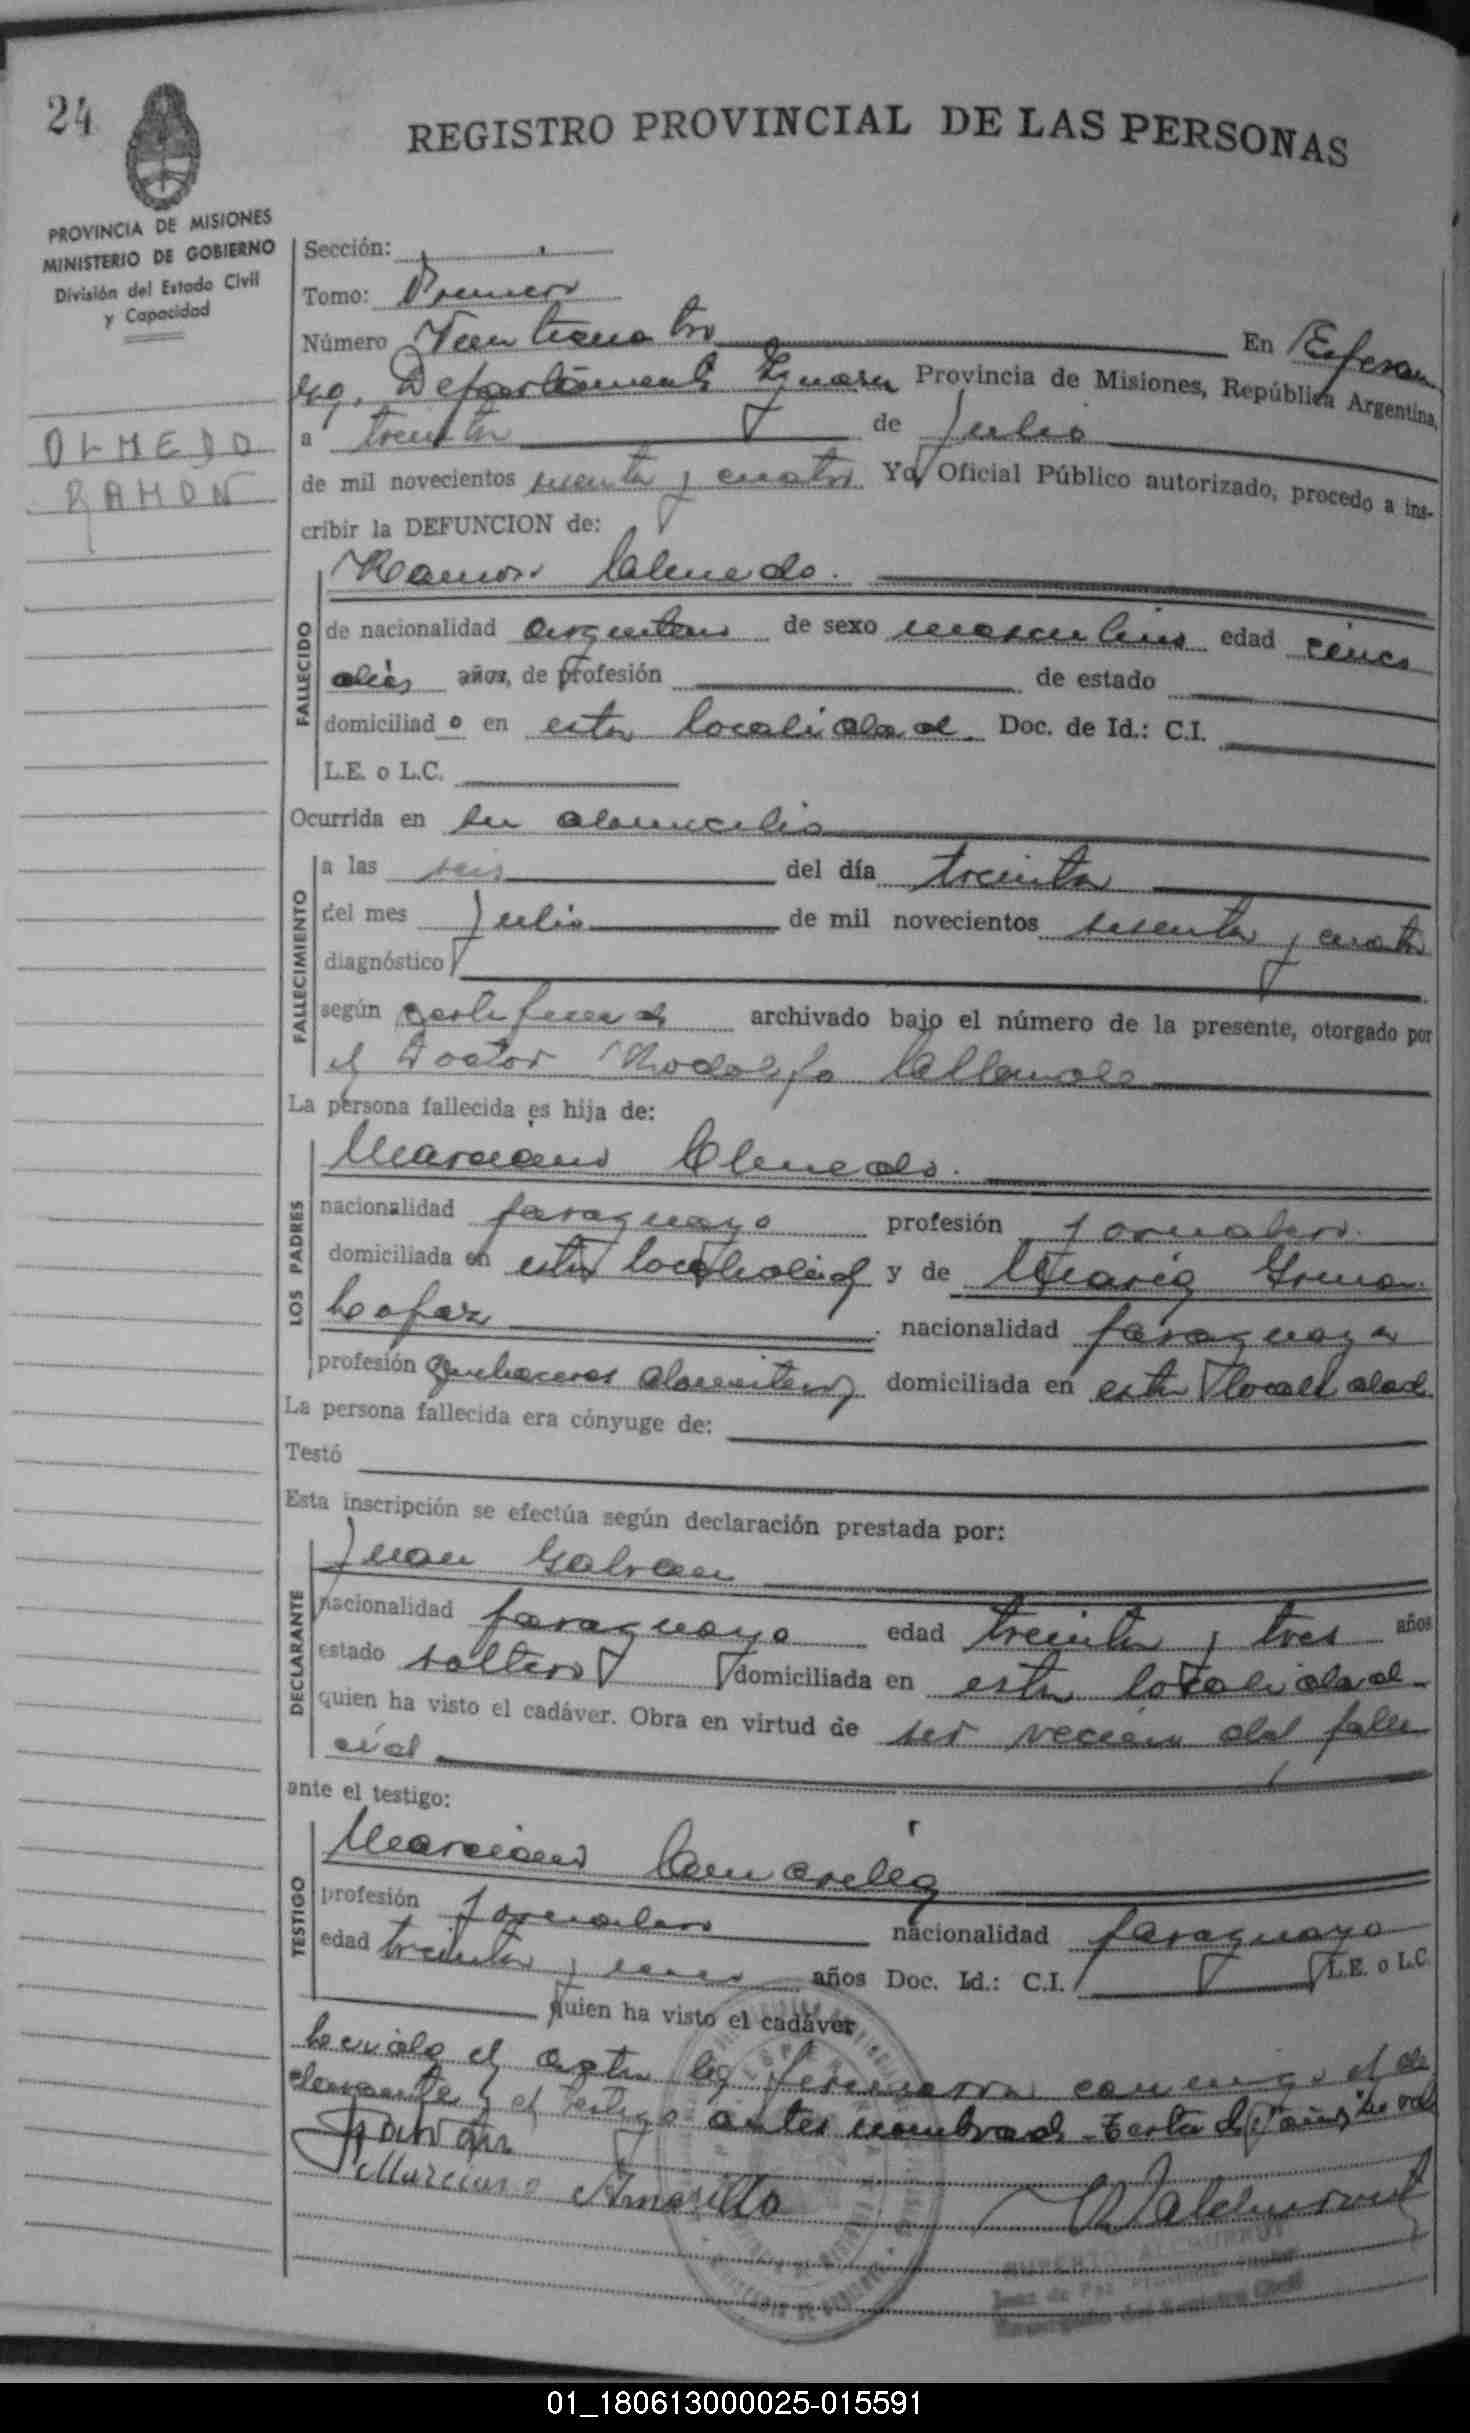 24
REGISTRO PROVINCIAL DE LAS PERSONAS
PROVINCIA DE MISIONES
MINISTERIO DE GOBIERNO
División del Estado Civil
y Capacidad
OLMEDO
RAMON
Sección:
Tomo: Primero
Número Veinticuatro En Esperan
za, Departamento Iguazu Provincia de Misiones, República Argentina,
a treinta de Julio
de mil novecientos sesenta y cuatro Yo, Oficial Público autorizado, procedo a ins-
cribir la DEFUNCION de:
Ramon Olmedo.
FALLECIDO
de nacionalidad argentino de sexo masculino edad cinco
dias años, de profesión de estado
domiciliado en esta localidad. Doc. de Id.: C.I.
L.E. o L.C.
Ocurrida en su domicilio
FALLECIMIENTO
a las seis del día treinta
del mes Julio de mil novecientos sesenta y cuatro
diagnóstico
según certificado archivado bajo el número de la presente, otorgado por
el Doctor Rodolfo
La persona fallecida es hija de:
LOS PADRES
Marciano Olmedo.
nacionalidad paraguayo profesión jornalero.
domiciliada en esta localidad y de Maria
Lopez nacionalidad paraguaya
profesión quehaceres domiciliada en esta localidad
La persona fallecida era cónyuge de:
Testó
Esta inscripción se efectúa según declaración prestada por:
DECLARANTE
Juan Galvan
nacionalidad paraguayo edad treinta y tres años
estado soltero domiciliada en esta localidad
quien ha visto el cadáver. Obra en virtud de ser vecino del falle
cido
ante el testigo:
TESTIGO
Marciano Amarilla
profesión jornalero nacionalidad paraguayo
edad treinta y años Doc. Id.: C.I. L.E. o L.C.
quien ha visto el cadáver
Leida el acta la firmaron conmigo el de
clarante y el testigo antes nombrado
Galvan
Marciano Amarilla
ALCHURRUT
Juez de Paz
Encargado del Registro Civil
01_180613000025-015591